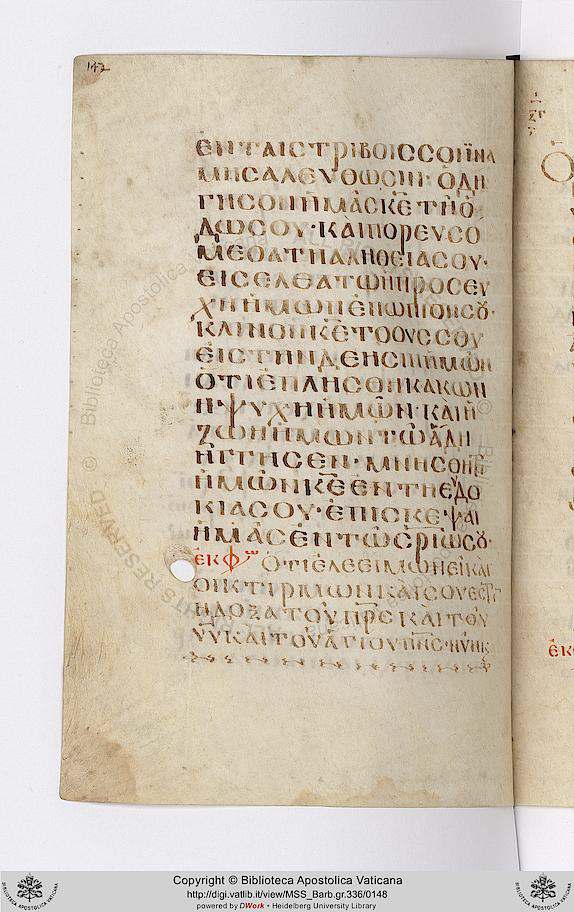 142
ἐν ταῖς τρίβοις σου ἵνα
μη σαλευθῶσιν· ὁδη
γησον ἡμᾶς κ̅ε̅ τῇ ὁ
δῷ σου· καὶ πορευσο
με θα τῇ αληθείασου·
εἰσελθάτω ἡ προσευ
χη ἡμῶν ἐνώπιον σου·
κλινον κ̅ε̅ το οὖς σου
εἰς τὴν δεησιν ἡμῶν
ὅτι ἐπλησθη κακῶν
ἡ ψυχη ἡμῶν· και ἡ
ζωὴ ἡμῶν τῶ ἅδη
ἤγγησεν· μνησθητι
ἡμῶν κ̅ε̅ ἐν τη εὐδο
κία σου· ἐπίσκεψαι
ἡμᾶς ἐν τῶ σ̅ρ̅ιω σου·
ἐκφω ὅτι ἐλεείμων εἶ και
οἰκτίρμων καὶ σου εστι
ἡ δοξα τοῦ π̅ρ̅ς καὶ του
υ̅υ̅ και τοῦ ἁγίου π̅ν̅ς· νῦν κ
Copyright © Biblioteca Apostolica Vaticana
http://digi.vatlib.it/view/MSS_Barb.gr.336/0148
powered by DWork • Heidelberg University Library